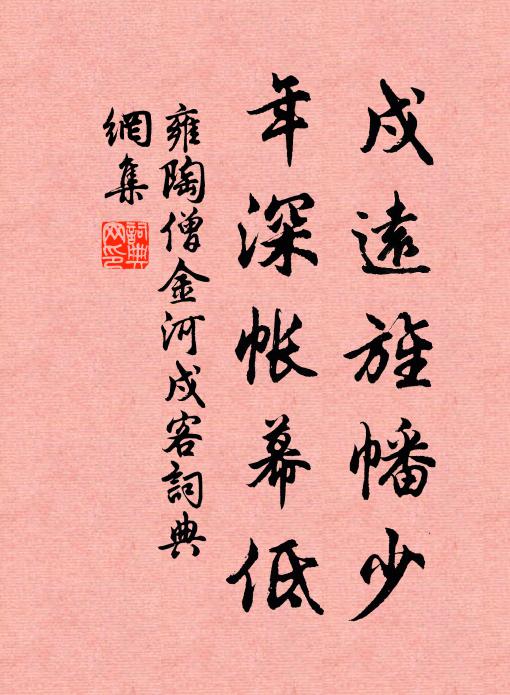 戍遠旌幡少
年深帳幕低
雍陶僧金河戍客詞典
網集
詞典
网印